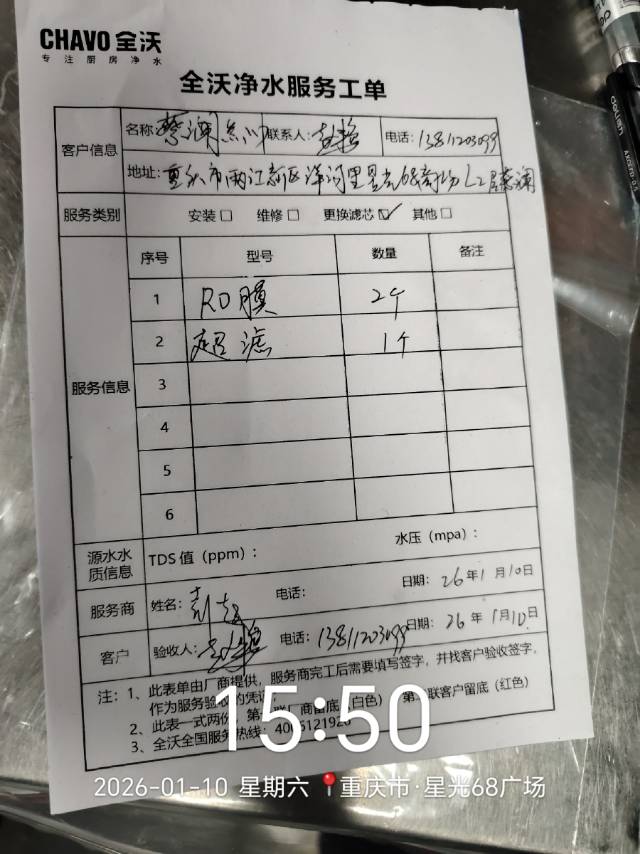 CHAVO 全沃
专注厨房净水
全沃净水服务工单
客户信息
名称: 蔡澜 联系人: 电话: 13811203099
地址: 重庆市两江新区洋河里星光68商场L2层蔡澜
服务类别 安装□ 维修□ 更换滤芯☑ 其他□
服务信息
序号 型号 数量 备注
1 RO膜 2个
2 超滤 1个
3
4
5
6
源水水质信息 TDS值（ppm）: 水压（mpa）:
服务商 姓名: 电话: 日期: 26年1月10日
客户 验收人: 电话: 13811203099 日期: 26年1月10日
注: 1、此表单由厂商提供，服务商完工后需要填写签字，并找客户验收签字，
作为服务验收的凭
2、此表一式两份，第 联厂商留底（白色） 第 联客户留底（红色）
3、全沃全国服务热线:
15:50
2026-01-10 星期六 重庆市·星光68广场
deli